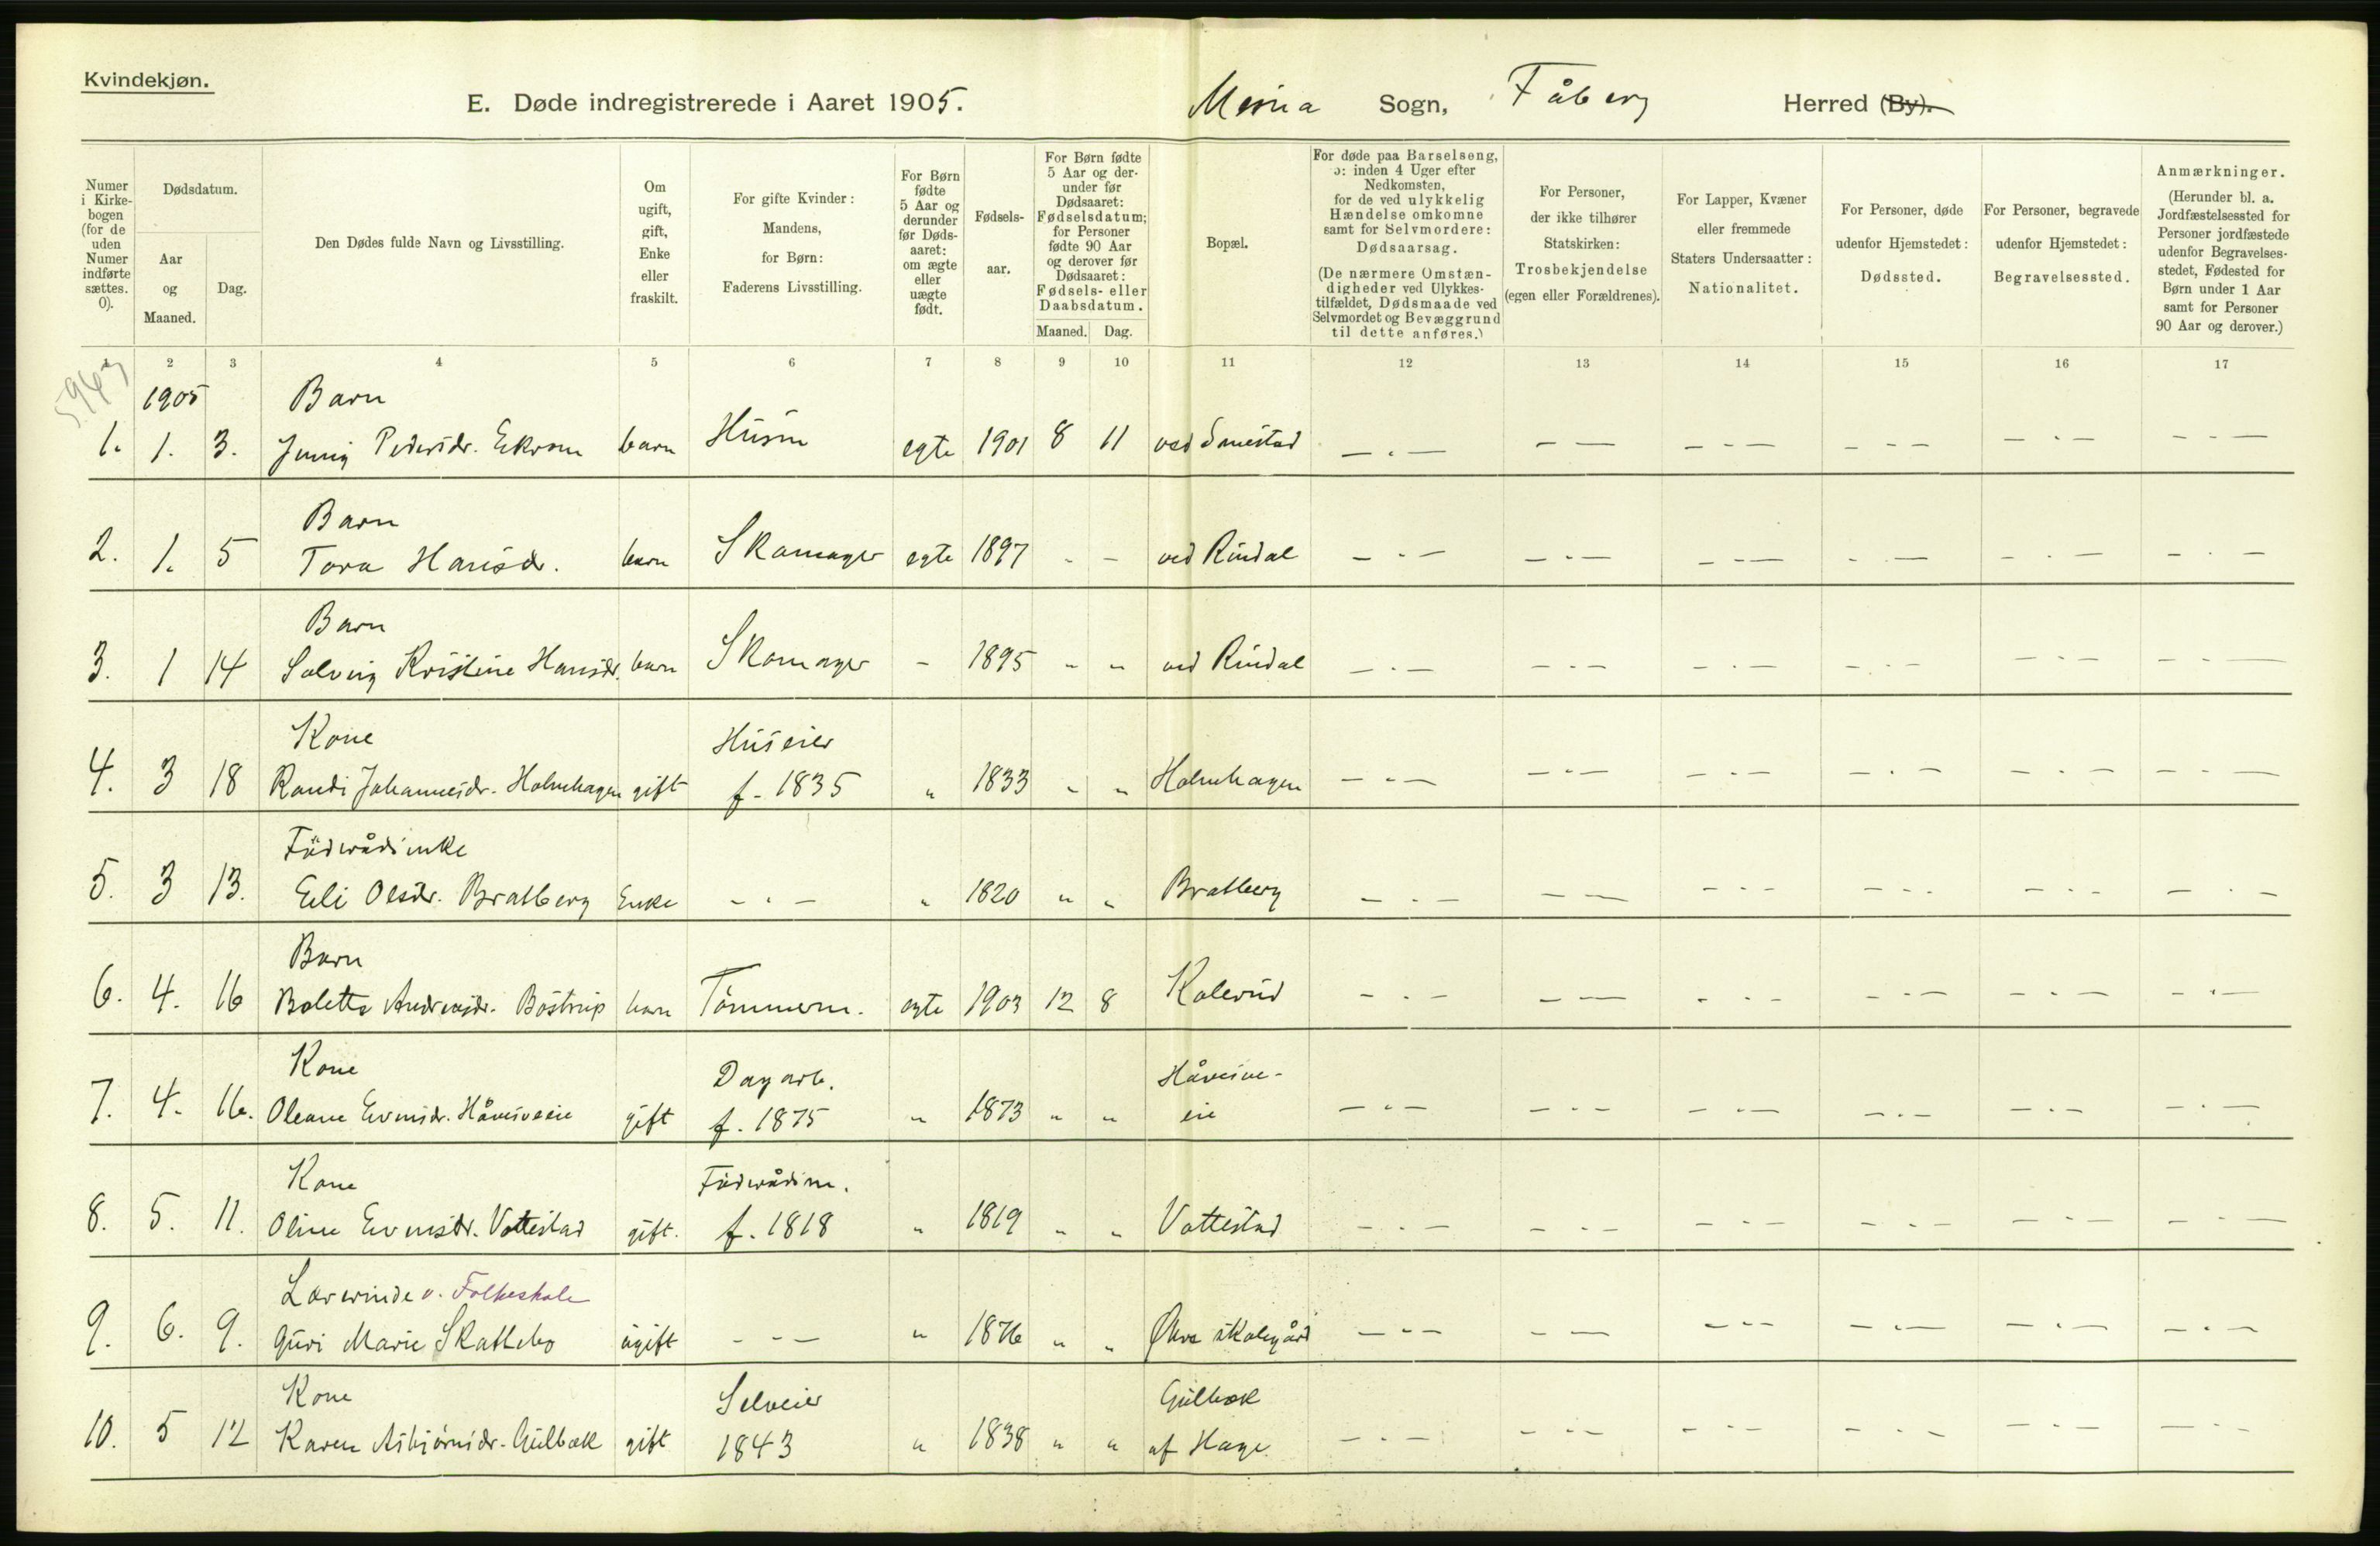 Kvindekjøn.
E. Døde indregistrerede i Aaret 1905. Mesna Sogn, Fåberg Herred (By).
Numer i Kirkebogen (for de uden Numer indførte sættes. 0).
Dødsdatum.
Aar og Maaned.
Dag.
Den Dødes fulde Navn og Livsstilling.
Om ugift, gift, Enke eller fraskilt.
For gifte Kvinder: Mandens, for Børn: Faderens Livsstilling.
For Børn fødte 5 Aar og derunder før Dødsaaret: om ægte eller uægte født.
Fødselsaar.
For Børn fødte 5 Aar og derunder før Dødsaaret: Fødselsdatum; for Personer fødte 90 Aar og derover før Dødsaaret: Fødsels- eller Daabsdatum.
Maaned. Dag.
Bopæl.
For døde paa Barselseng, ɔ: inden 4 Uger efter Nedkomsten, for de ved ulykkelig Hændelse omkomne samt for Selvmordere: Dødsaarsag.
(De nærmere Omstændigheder ved Ulykkestilfældet, Dødsmaade ved Selvmordet og Bevæggrund til dette anføres.)
For Personer, der ikke tilhører Statskirken: Trosbekjendelse (egen eller Forældrenes).
For Lapper, Kvæner eller fremmede Staters Undersaatter: Nationalitet.
For Personer, døde udenfor Hjemstedet: Dødssted.
For Personer, begravede udenfor Hjemstedet: Begravelsessted.
Anmærkninger.
(Herunder bl. a. Jordfæstelsessted for Personer jordfæstede udenfor Begravelsesstedet, Fødested for Børn under 1 Aar samt for Personer 90 Aar og derover.)
1 2 3 4 5 6 7 8 9 10 11 12 13 14 15 16 17
1905 Barn
1. 1. 3. Jenny Pedersdr. Ekrom barn Husm egte 1901 8 11 ved Smestad — . — — — — - — - - — — . — - - —
Barn
2. 1. 5 Tora Hansdr. barn Skomager egte 1897 - - ved Rindal — - — — - — — - — - . — — . — — . —
Barn
3. 1 14 Solveig Kristine Hansdr. barn Skomager - 1895 " " ved Rindal — . — — - — — . — — . — — . — — . —
Kone Huseier
4. 3 18 Randi Johannesdr. Holmhagen gift f. 1835 " 1833 " " Holmhagen — - — — - — — - — — . — — . — — . —
Föderådsenke
5. 3 13. Eli Olsdr. Bratberg Enke — . — " 1820 " " Bratberg — . — — — — - — — - - — . — — . —
Barn
6. 4. 16 Bolette Andreasdr. Båstrup barn Tømmerm. egte 1903 12 8 Kolerud — . — — - — - . - — . — — . — — . —
Kone Dagarb. Håveive-
7. 4. 16. Oleane Evensdr. Håveiveeie gift f. 1875 " 1873 " " eie — - — — - — — - — — . — — . — — . —
Kone Föderådsm.
8. 5. 11. Oline Evensdr. Vottestad gift. f. 1818 " 1819 " " Vottestad — . — — . — — - — — . — — . — — . —
Lærerinde v. Folkeskole
9. 6. 9. Guri Marie Skattebo ugift - - — " 1876 " " Økre skolegård — - — — — — - — — . — — . — — . —
Kone Selveier Gulbæk
10. 5 12 Karen Asbjørnsdr. Gulbæk gift 1843 " 1838 " " af Hage. — . — — . — — . — — . — — . — — . —